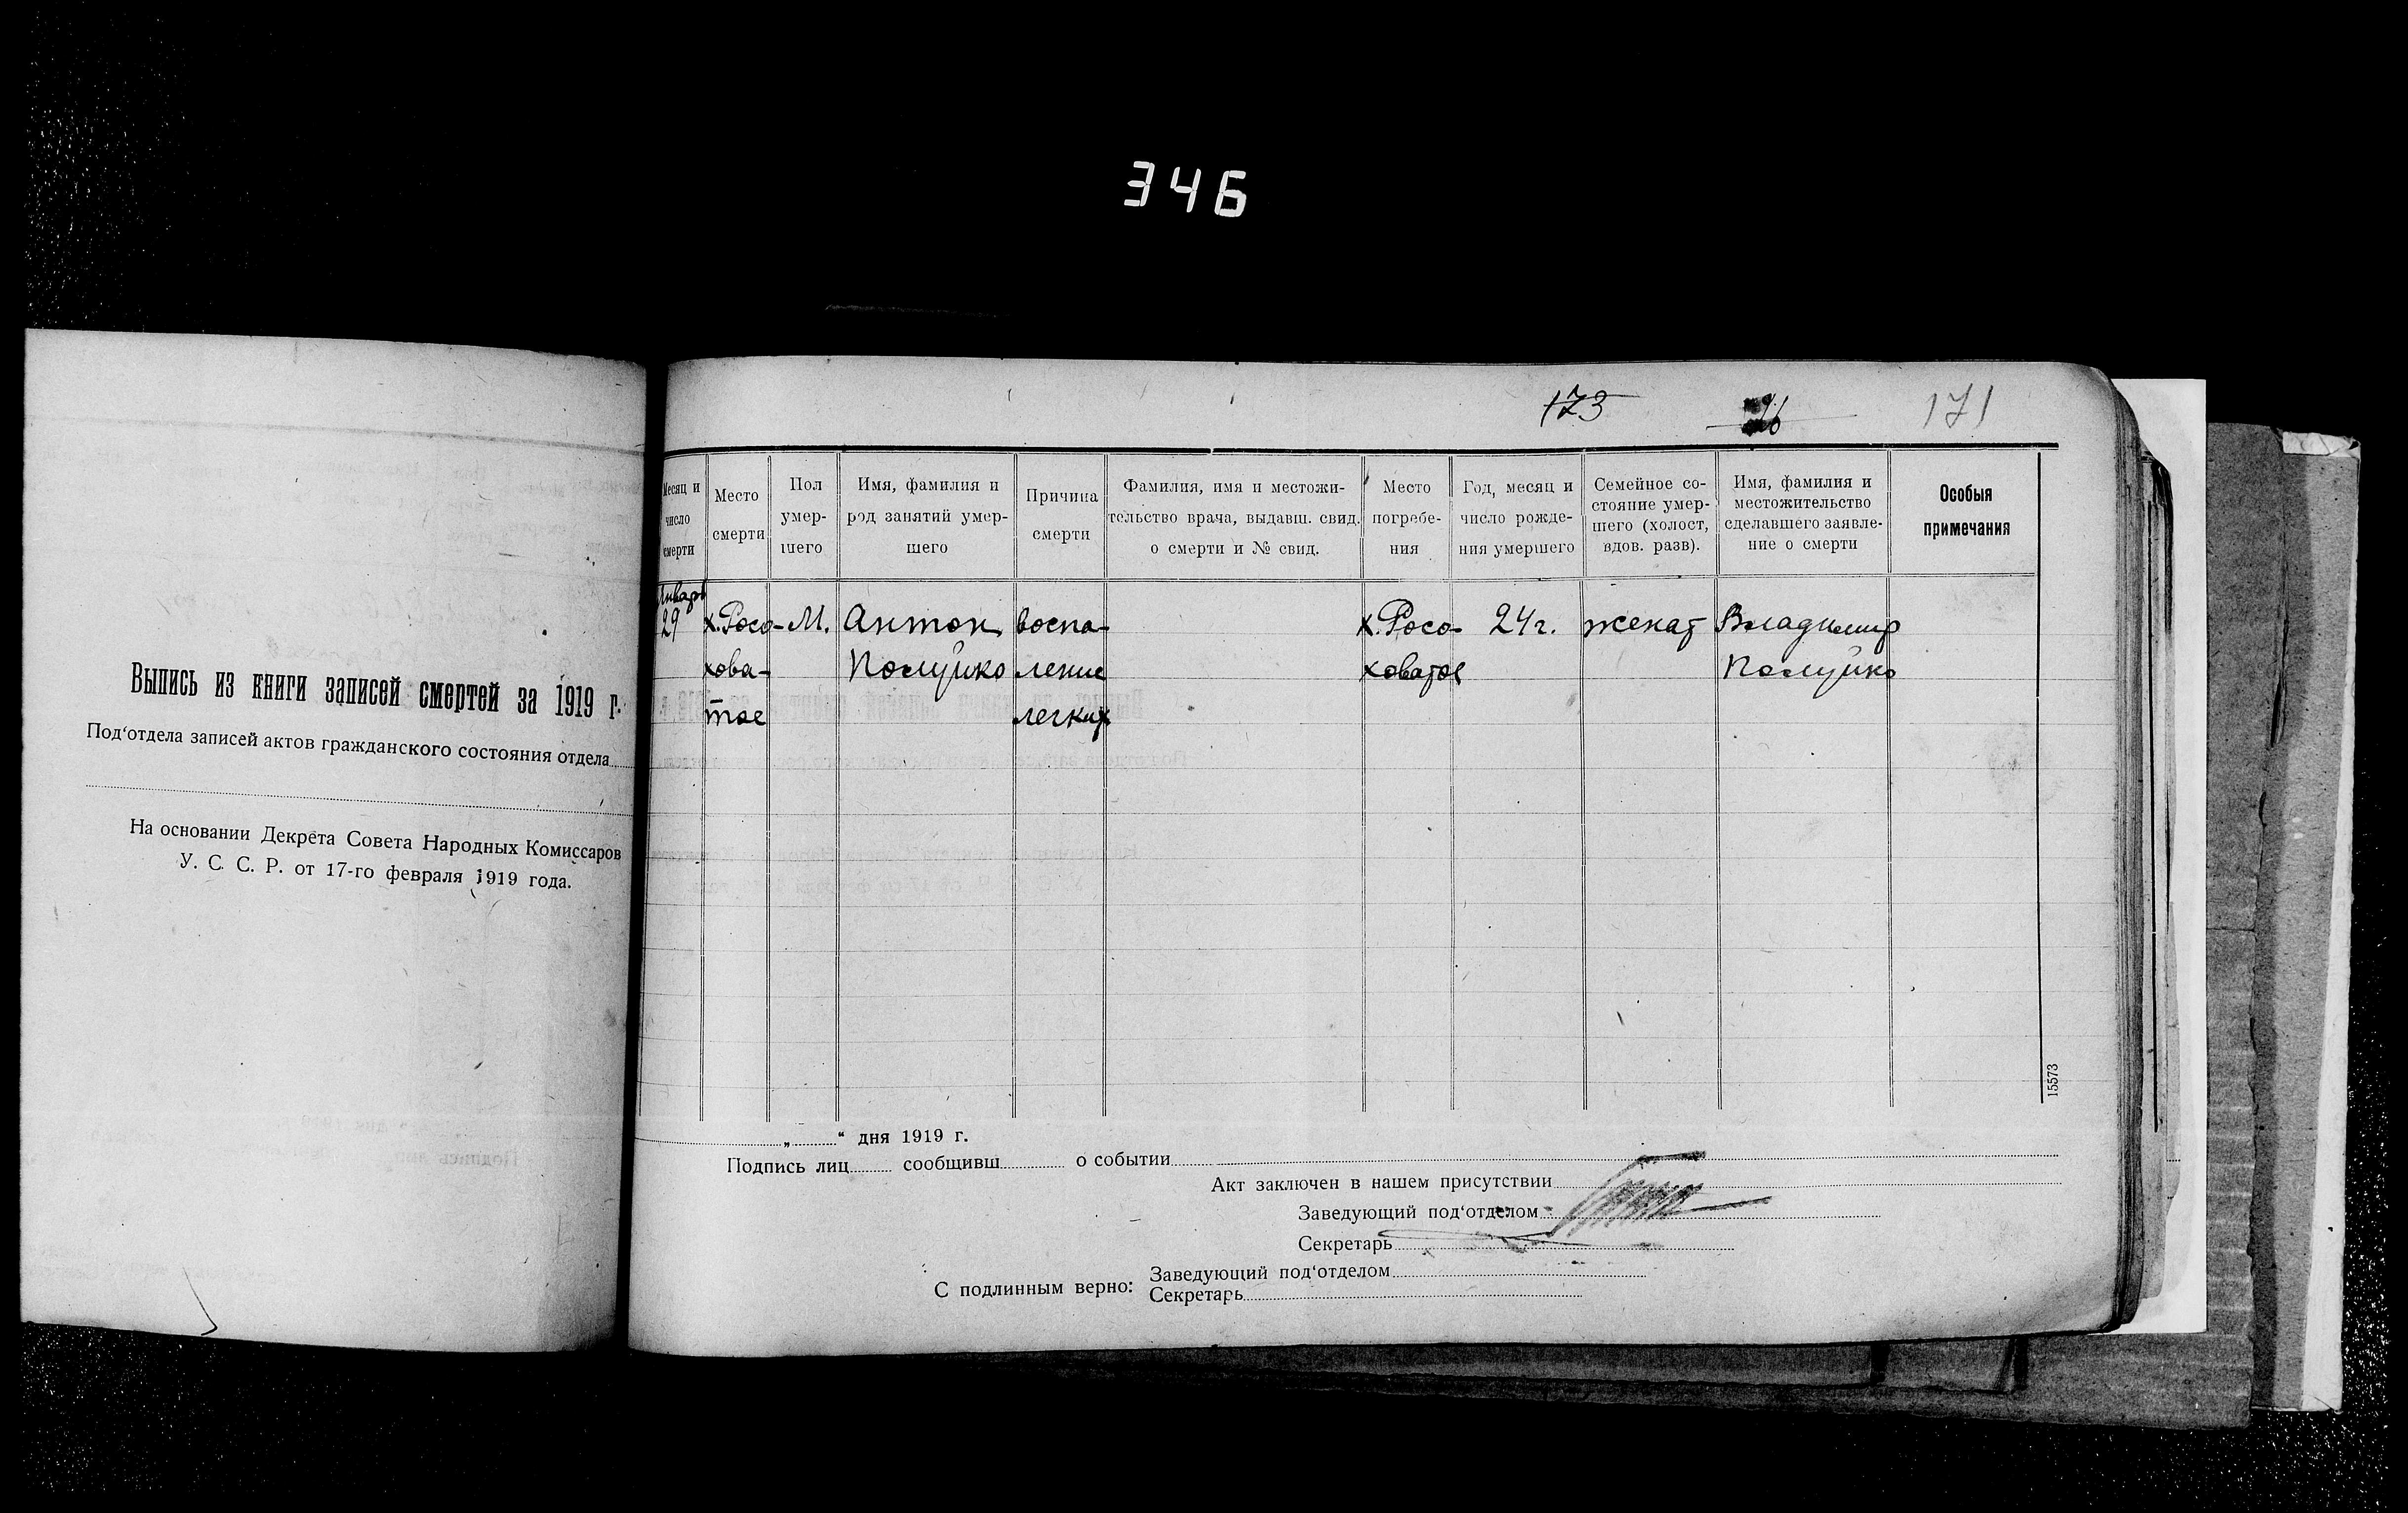 346
173
171
Выпись из книги записей смертей за 1919 г.
Под‘отдела записей актов гражданского состояния отдела
На основании Декрета Совета Народных Комиссаров
У. С. С. Р. от 17-го февраля 1919 года.
Месяц и
число
смерти
Место
смерти
Пол
умер-
шего
Имя, фамилия и
род занятий умер-
шего
Причина
смерти
Фамилия, имя и местожи-
тельство врача, выдавш. свид.
о смерти и № свид.
Место
погребе-
ния
Год, месяц и
число рожде-
ния умершего
Семейное со-
стояние умер-
шего (холост,
вдов. разв).
Имя, фамилия и
местожительство
сделавшего заявле-
ние о смерти
Особыя
примечания
Январь
29
х. Росо-
ховa-
тое
М.
Антон
Полуйко
воспа-
ление
легких
х. Росо-
ховатое
24 г.
женат
Владимир
Полуйко
15573
„ “ дня 1919 г.
Подпись лиц сообщивш о событии
Акт заключен в нашем присутствии
Заведующий под‘отделом
Секретарь
С подлинным верно:
Заведующий под‘отделом
Секретарь